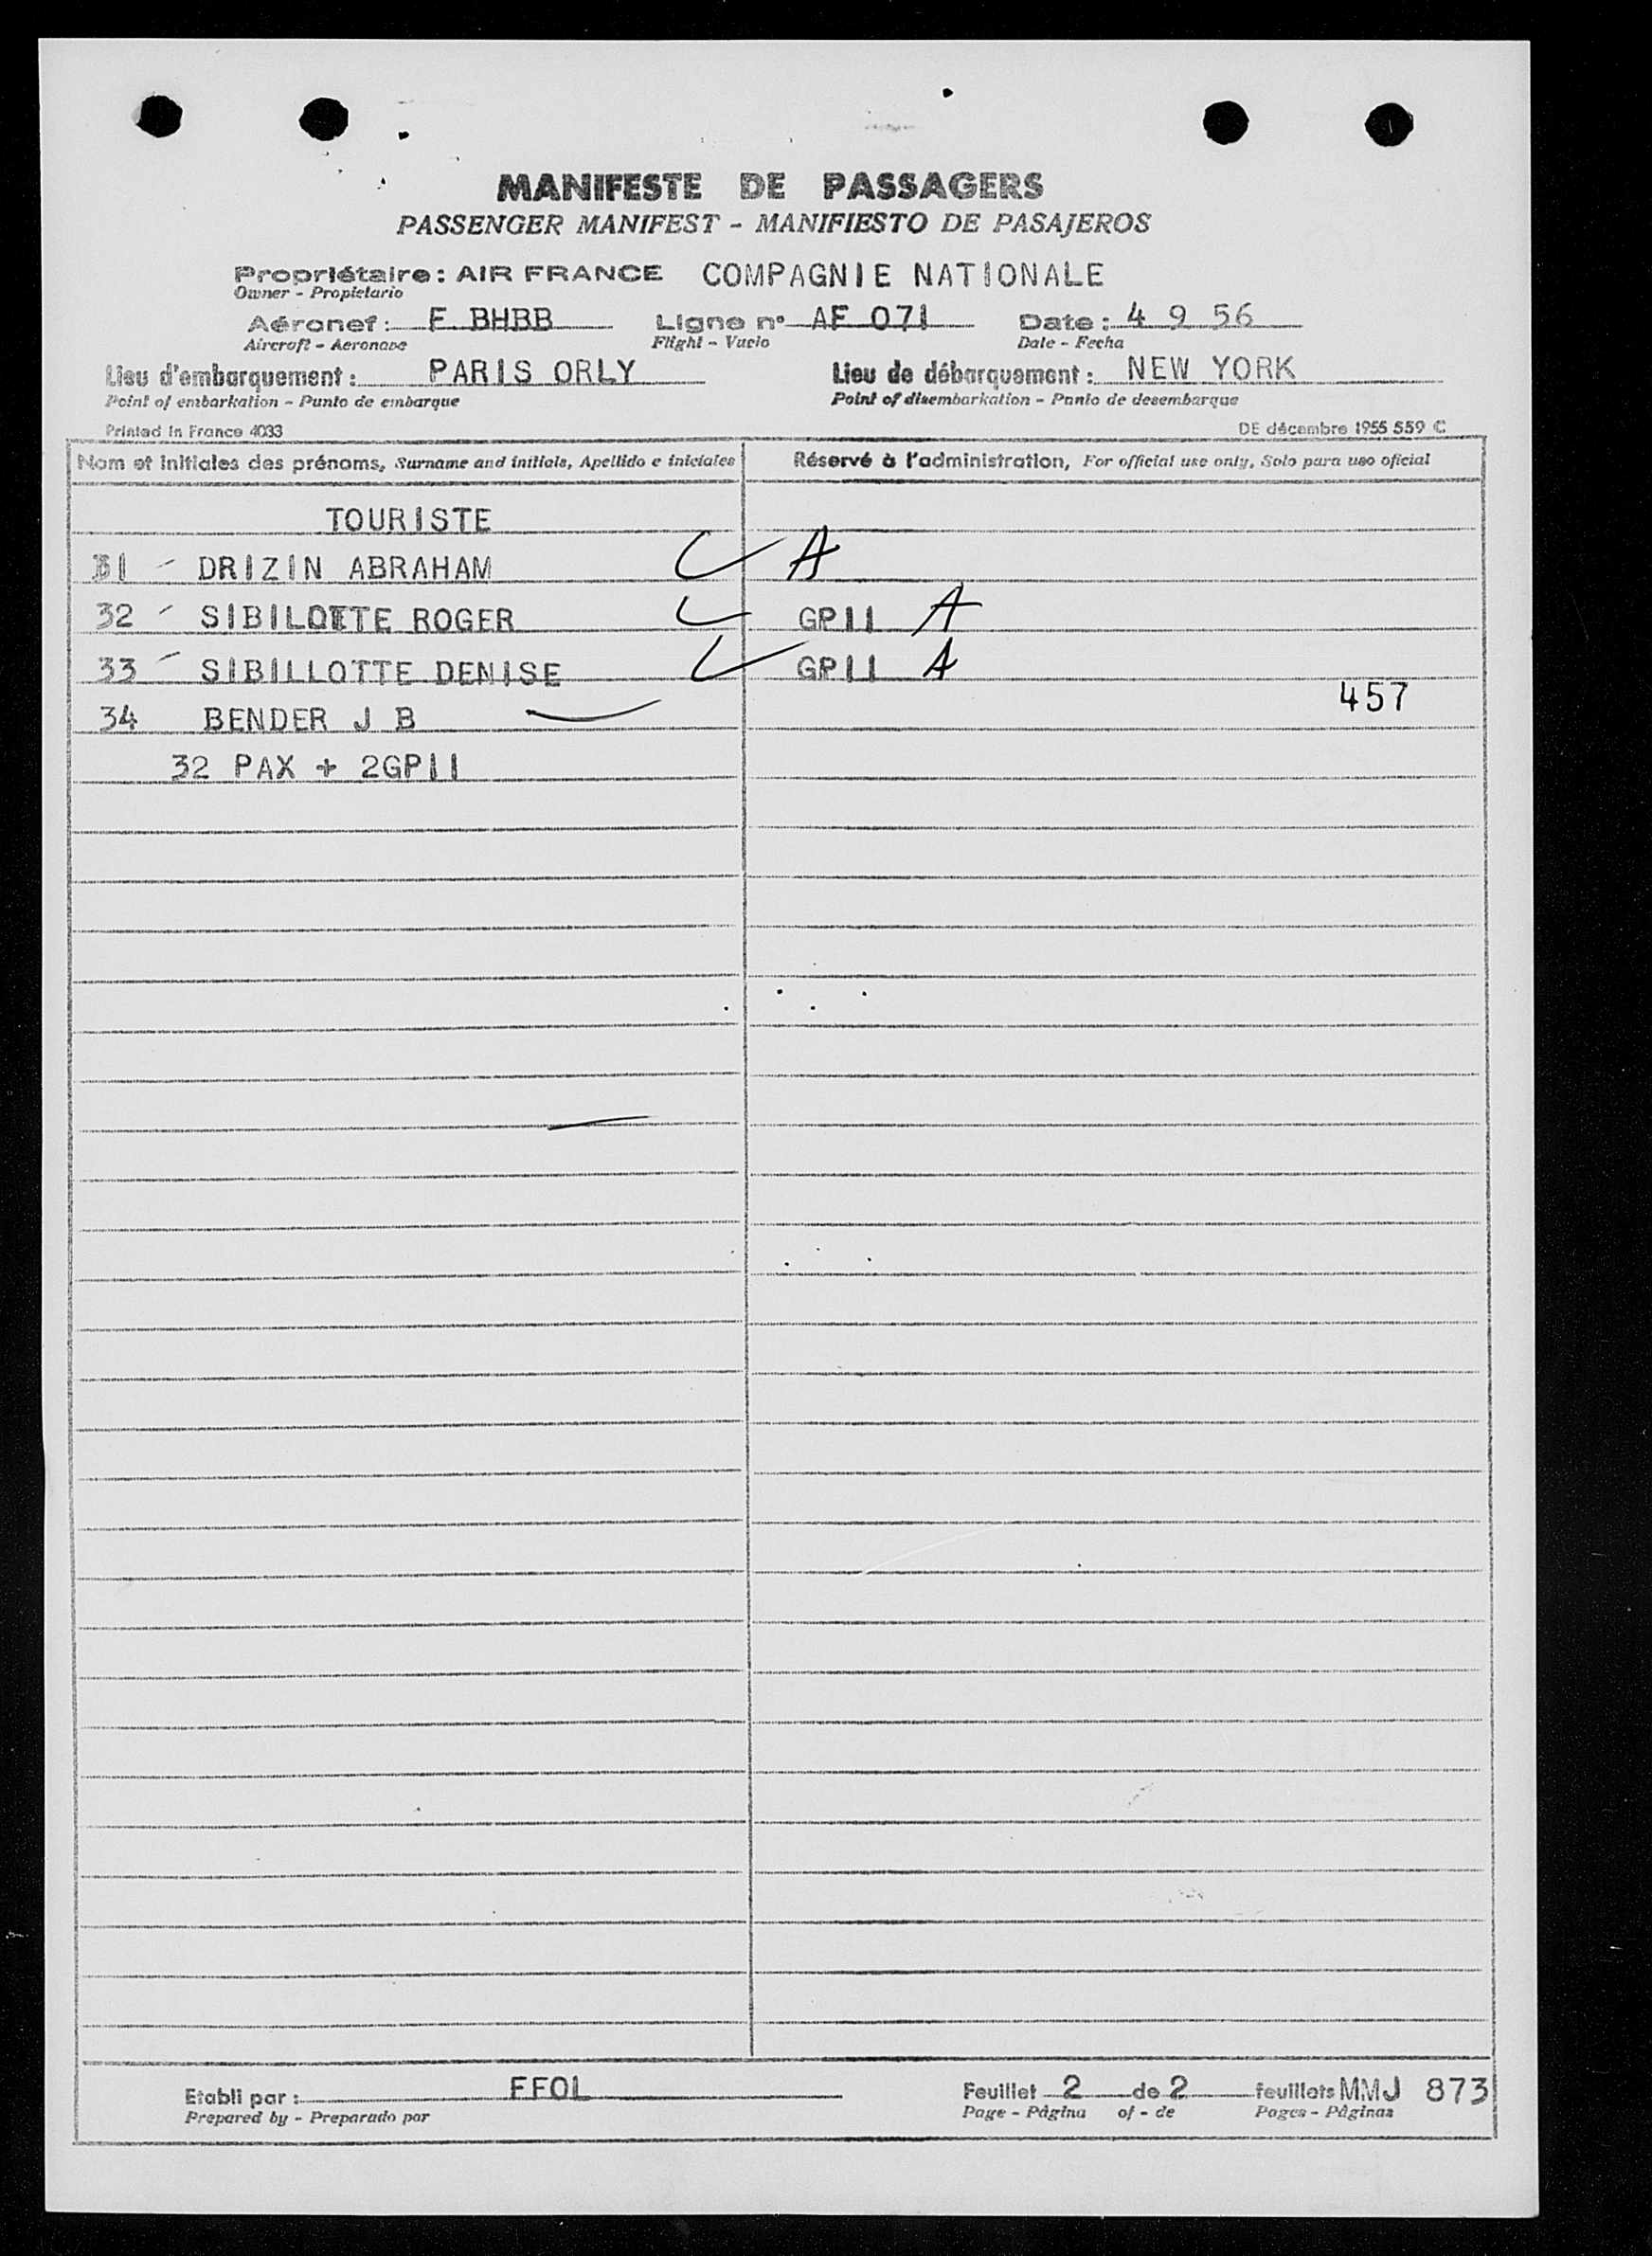 MANIFESTE DE PASSAGERS
PASSENGER MANIFEST - MANIFIESTO DE PASAJEROS
Propriétaire: AIR FRANCE COMPAGNIE NATIONALE
Owner - Propietario
Aéronef: F BHBB Ligne n° AF 071 Date: 4 9 56
Aircraft - Aeronave Flight - Vuelo Date - Fecha
Lieu d'embarquement: PARIS ORLY Lieu de débarquement: NEW YORK
Point of embarkation - Punto de embarque Point of disembarkation - Punto de desembarque
Printed in France 4033 DE décembre 1955 559 C
Nom et initiales des prénoms, Surname and initials, Apellido e iniciales Réservé à l'administration, For official use only, Solo para uso oficial
TOURISTE
31 - DRIZIN ABRAHAM A
32 - SIBILOTTE ROGER GP11 A
33 - SIBILLOTTE DENISE GP11 A
457
34 BENDER J B
32 PAX + 2GP11
Etabli par: FFOL Feuillet 2 de 2 feuillets MMJ 873
Prepared by - Preparado por Page - Página of - de Pages - Páginas